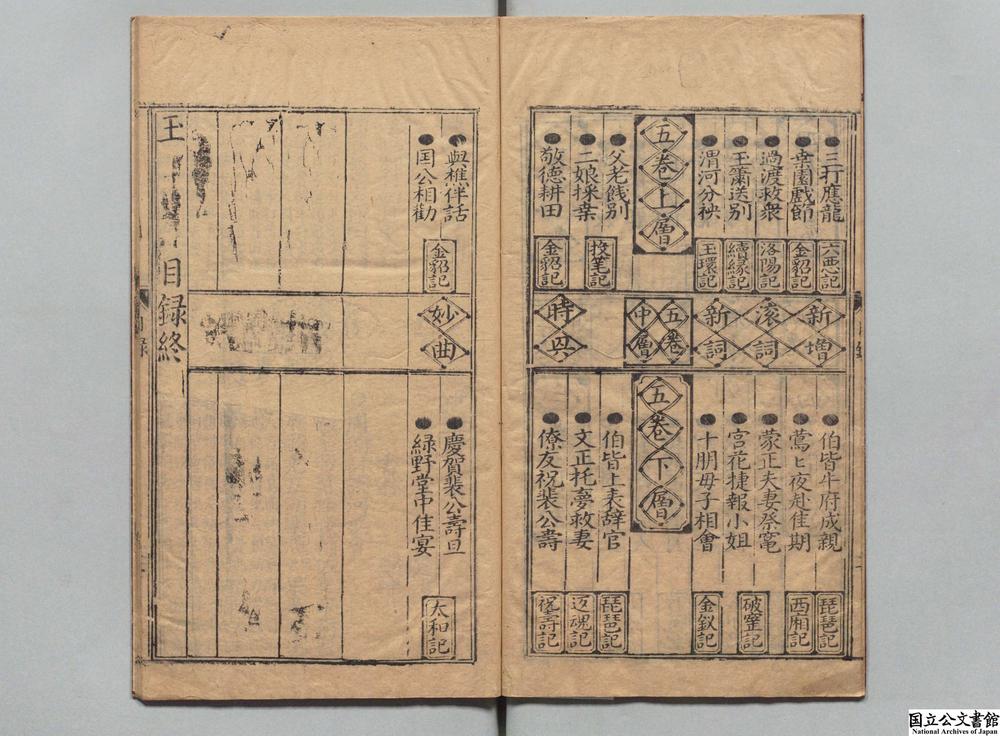 三打應龍 六惡記
棄園戲節 金貂記
過渡救衆 洛陽記
玉簫送別 續緣記
渭河分袂 玉環記
五卷上層
父老餞別
二娘採桑 投笔記
敬德耕田 金貂記
新增
滚詞
新詞
五卷
中層
時興
伯皆牛府成親 琵琶記
鶯匕夜赴佳期 西廂記
蒙正夫妻祭竃 破窑記
宮花捷報小姐
十朋母子相會 金釵記
五卷下層
伯皆上表辞官 琵琶記
文正托夢救妻 还魂記
僚友祝裴公壽 壽記
與樵伴話
囯公相勸 金貂記
妙曲
慶賀裴公壽旦
緑野堂中佳宴 太和記
目録終
国立公文書館
National Archives of Japan